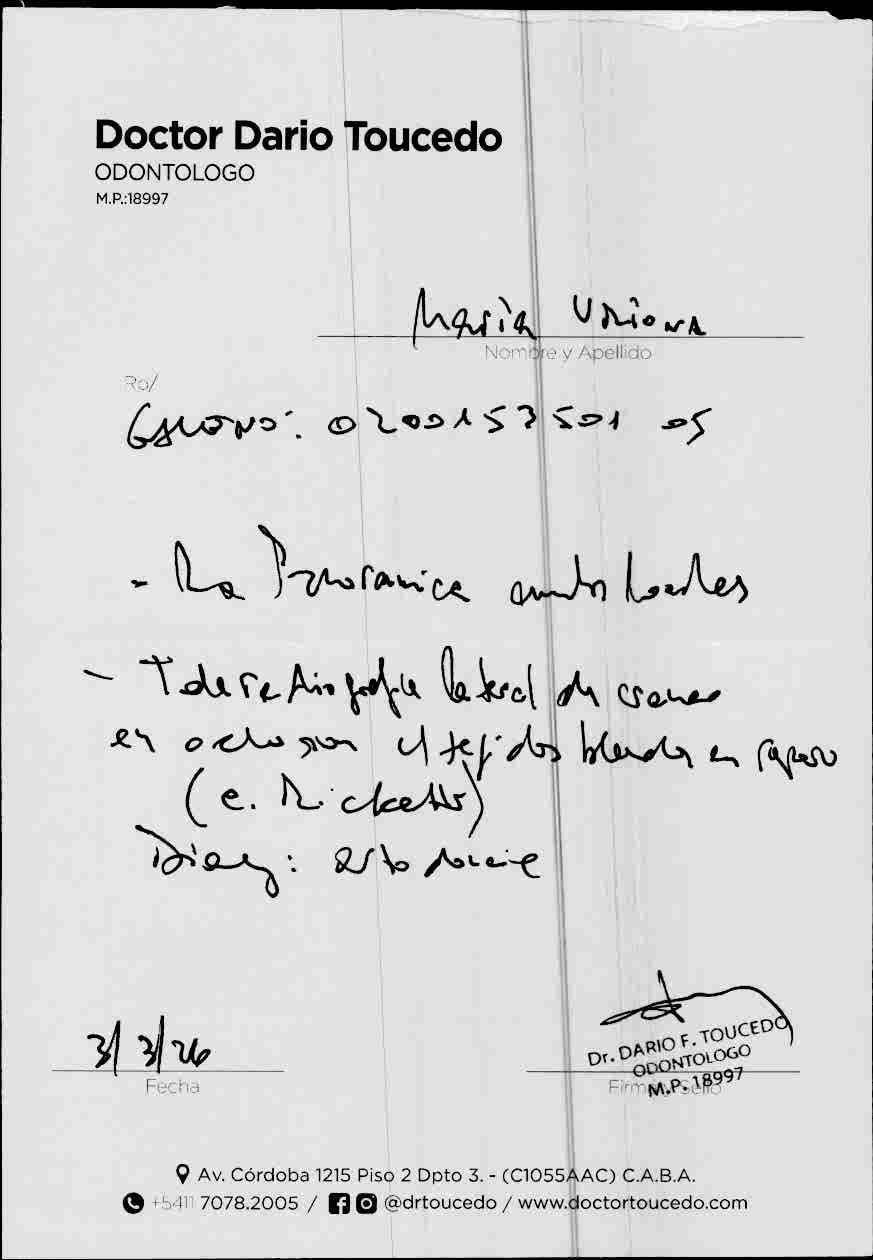 Doctor Dario Toucedo
ODONTOLOGO
M.P.:18997
Maria Uriona
Nombre y Apellido
Rp/
GALENO: 0200153501 05
- Rx Panoramica ambos maxilares
- Telerradiografia lateral de craneo
en oclusion c/ tejidos blandos en reposo
(c. Ricketts)
Diag: ortodoncia
3/3/26
Fecha
Dr. DARIO F. TOUCEDO
ODONTOLOGO
M.P. 18997
Firma y Sello
Av. Córdoba 1215 Piso 2 Dpto 3. - (C1055AAC) C.A.B.A.
+5411 7078.2005 / @drtoucedo / www.doctortoucedo.com